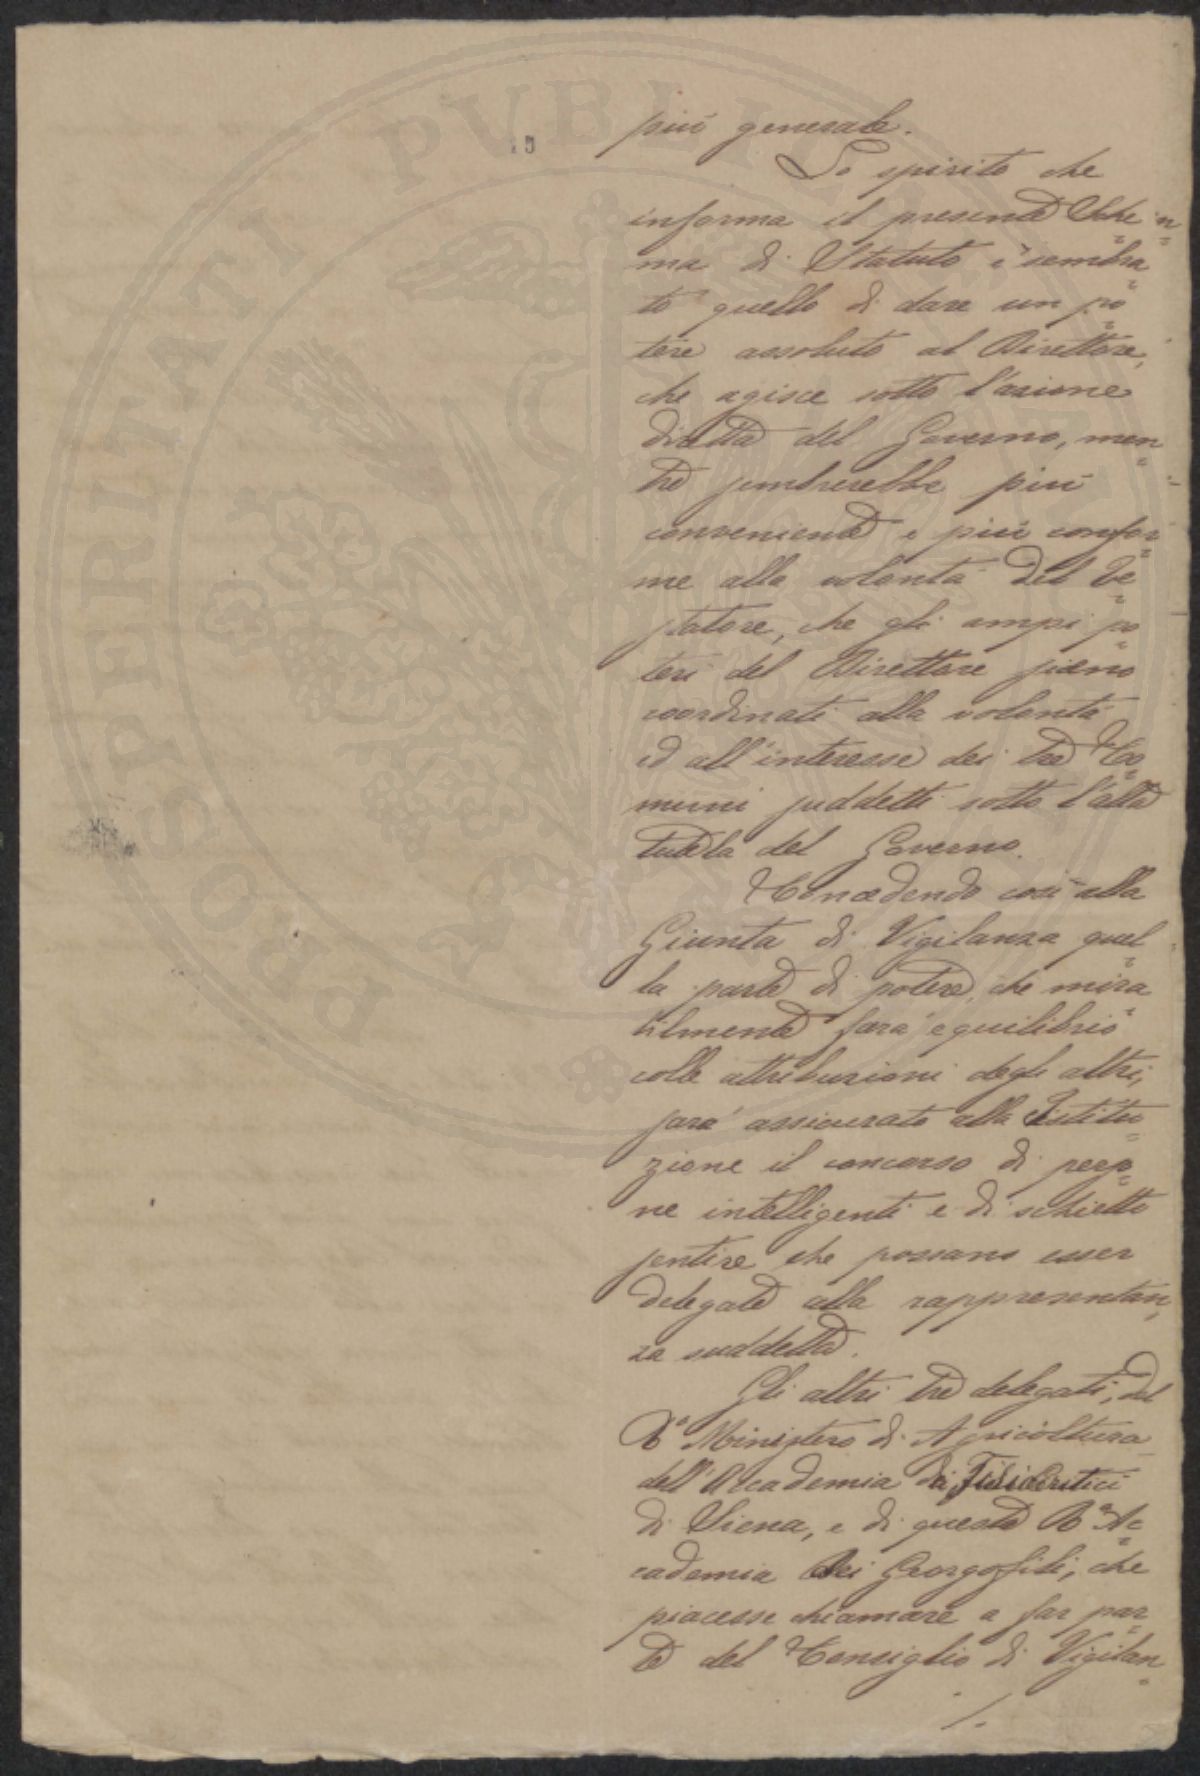 PROSPERITATI PVBLICAE AVGENDAE
più generale.
Lo spirito che
informa il presente Sche=
ma di Statuto è sembra=
to quello di dare un po=
tere assoluto al Direttore,
che agisce sotto l'azione
diretta del Governo, men=
tre sembrerebbe più
conveniente e più confor=
me alla volontà del Te=
statore, che gli ampi po=
teri del Direttore sieno
coordinati alla volontà
ed all'interesse dei tre Co=
muni suddetti sotto l'alta
tutela del Governo.
Concedendo così alla
Giunta di Vigilanza quel=
la parte di potere, che mira=
bilmente farà equilibrio
colle attribuzioni degli altri,
sarà assicurato alla Istitu=
zione il concorso di perso=
ne intelligenti e di schietto
sentire che possano esser
delegate alla rappresentan=
za suddetta.
Gli altri tre delegati, del
R.o Ministero di Agricoltura
dell'Accademia dei Fisiocritici
di Siena, e di questa R.a Ac=
cademia dei Georgofili, che
piacesse chiamare a far par=
te del Consiglio di Vigilan=
./.